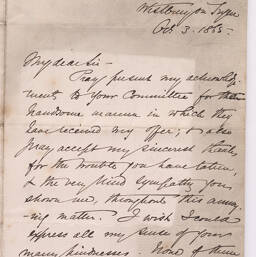 Oct 3. 1865.
My dear Sir –
Pray present my acknowledg-
ments to your Committee for the
handsome manner in which they
have received my offer; & also
pray accept my sincerest thanks
for the trouble you have taken,
& the very kind sympathy you
shown me, throughout this
-ing matter. I wish I could
express all my sense of your
many kindnesses. None of them